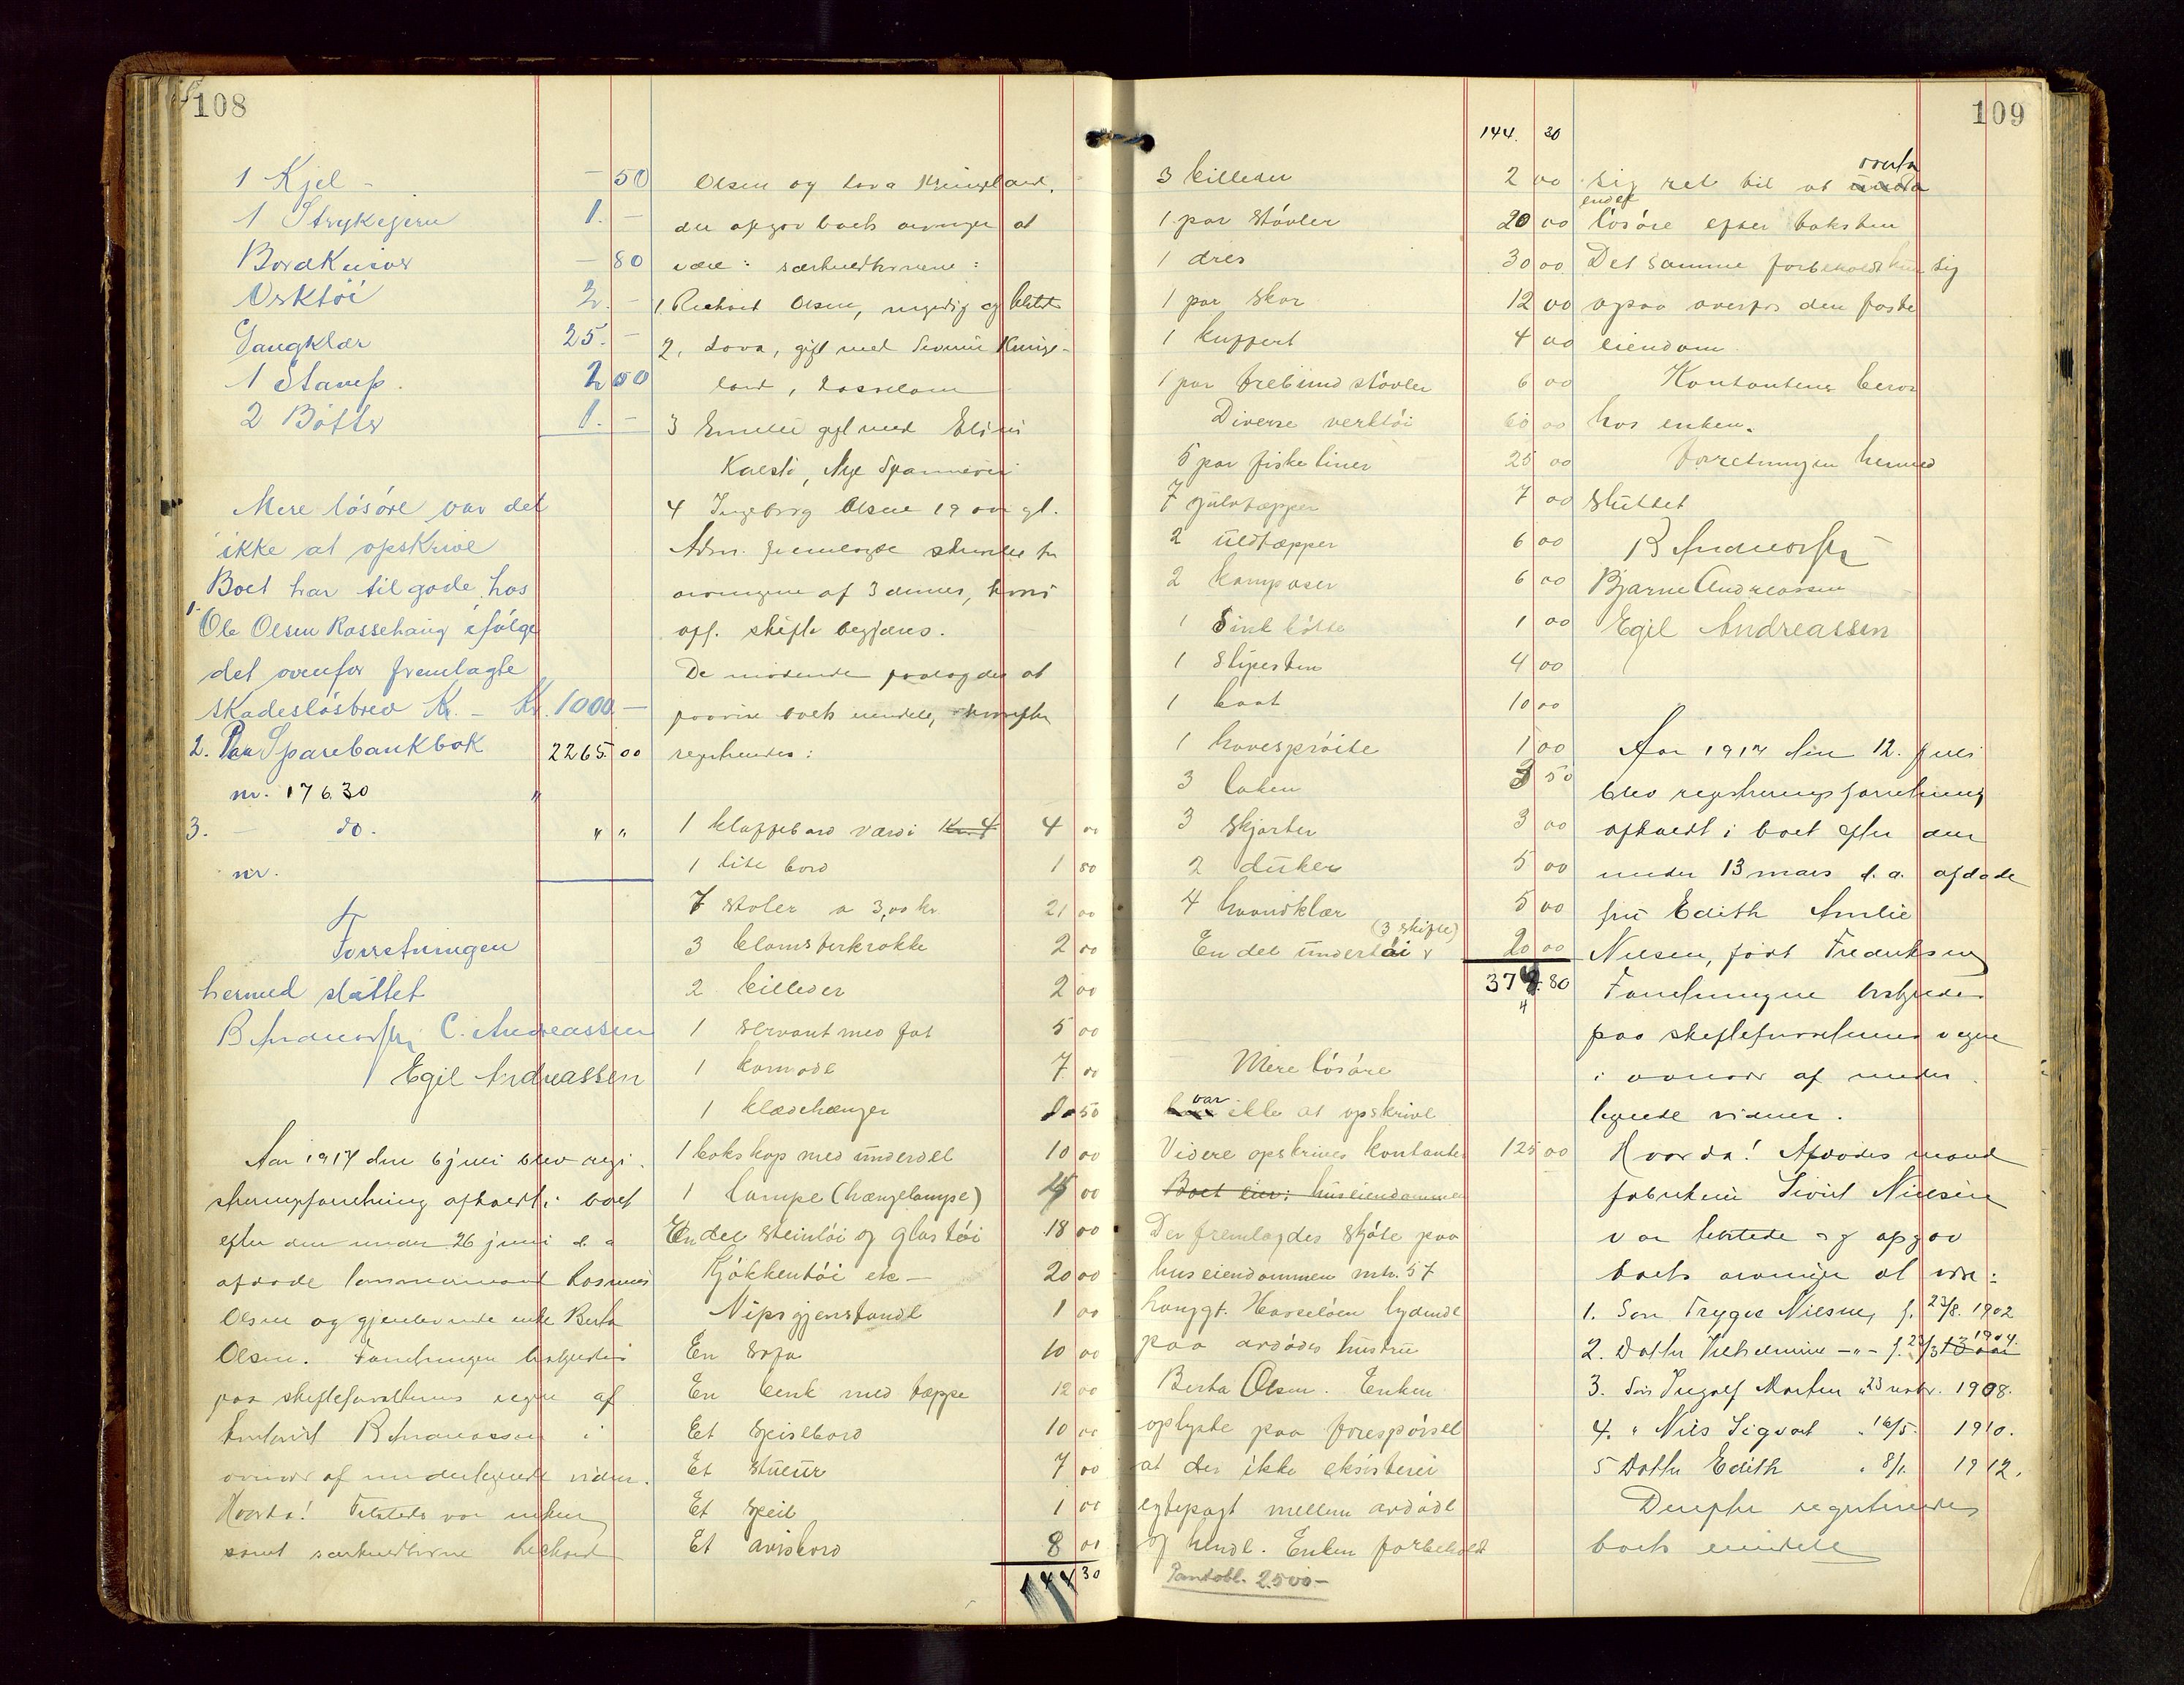 108
1 Kjel - — 50
1 Strykejern 1. —
Bordkniver — 80
Vasktöi 2. —
Gangklær 25. —
1 Stamp. 2 50
2 Bötter 1. —
Mere lösöre var det
ikke at opskrive
Boet har tilgode hos
1. Ole Olsen Rossehaug ifölge
det ovenfor fremlagte
skadeslösbrev Kr. — Kr. 1000 —
2. Paa Sparebankbok 2265.00
nr. 17630 "
3. — do. " "
nr.
Forretningen
hermed sluttet
B Andreassen C. Andreassen
Egil Andreassen
Aar 1917 den 6 juli blev regi-
streringsforretning afholdt i boet
efter den under 26 juni d. a
afdøde tømmermand Rasmus
Olsen og gjenlevende enke Berta
Olsen. Forretningen bestyrtes
paa skifteforvalterens vegne af
B Andreassen i
overvær af undertegnede vidner.
Hvorda! Tilstede var enken
samt særkuldbarne Rickard
Olsen og Lova
der opgav boets arvinger at
være: særkuldbarnene:
1. Rickard Olsen, myndig og tilstede
2. Lova, gift med
land,
3 Emilie gift med
4 Ingeborg Olsen 19 aar gl.
Adm. fremlagde
arvingerne af 3 dennes, hvori
off. skifte begjæres.
De mødende paalagdes at
paavise boets eiendele, hvorefter
registrertes:
1 klappebord værdi Kr. 4 4 00
1 lite bord 1 80
7 stoler a 3,00 kr 21 00
3 blomsterkrakke 2 00
2 billeder 2 00
1 servant med fat 5 00
1 komode 7 00
1 klædehænger 50
1 bokskap med underdel 10 00
1 lampe (hængelampe) 00
En del steintöi og glastöi 18 00
Kjökkentöi etc — 20 00
Nipsgjenstande 1 00
En sofa 10 00
En benk med tæppe 12 00
Et spisebord 10 00
Et stueur 7 00
Et speil 1 00
Et avisbord 8 00
144 30
109
144. 30
3 billeder 2 00
1 par stövler 20 00
1 dres 30 00
1 par skor 12 00
1 kuffert 4 00
1 par trebund stövler 6 00
Diverse verktöi 60 00
5 par fiskeliner 25 00
7 gulvtæpper 7 00
2 uldtæpper 6 00
2 6 00
1 Sink bötte 1 00
1 Slipesten 4 00
1 baat 10 00
1 havespröite 1 00
3 laken 3 50
3 skjorter 3 00
2 duker 5 00
4 haandklær 5 00
(3 skifte)
En del undertöi 20 00
80
Mere lösöre
var ikke at opskrive
Videre opskrives kontanter 125 00
Boet eier: huseiendommen
Der fremlagdes skjöte paa
huseiendommen mtr. 57
Haugt. Hasselöen lydende
paa avdödes hustru
Berta Olsen. Enken
oplyste paa forespörsel
at der ikke eksisterer
egtepagt mellem avdöde
og hende. Enken forbeholdt
Pantobl. 2500 —
sig ret til at overta
endel
lösöre efter taksten
Det samme forbeholdt hun sig
ogsaa overfor den faste
eiendom
Kontanten beror
hos enken.
Forretningen hermed
sluttet
B Andreassen
Bjarne Andreassen
Egil Andreassen
Aar 1917 den 12. juli
blev registreringsforretning
afholdt i boet efter den
under 13 mars d. a. afdøde
fru Edith Amlie
Nielsen, født Fredriksen
Forretningen bestyrtes
paa skifteforvalterens vegne
i overvær af under
tegnede vidner.
Hvorda! Afdødes mand
Sivert Nielsen
var tilstede og opgav
boets arvinger at være:
1. Søn Trygve Nielsen, f. 23/8. 1902
2. Datter Vilhelmine —"— f. 1904.
3. Søn Ingolf Morten " 23 novbr. 1908.
4. " Nils Sigvart " 16/5. 1910.
5 Datter Edith " 8/1. 1912.
Derefter registrertes
boets eiendele